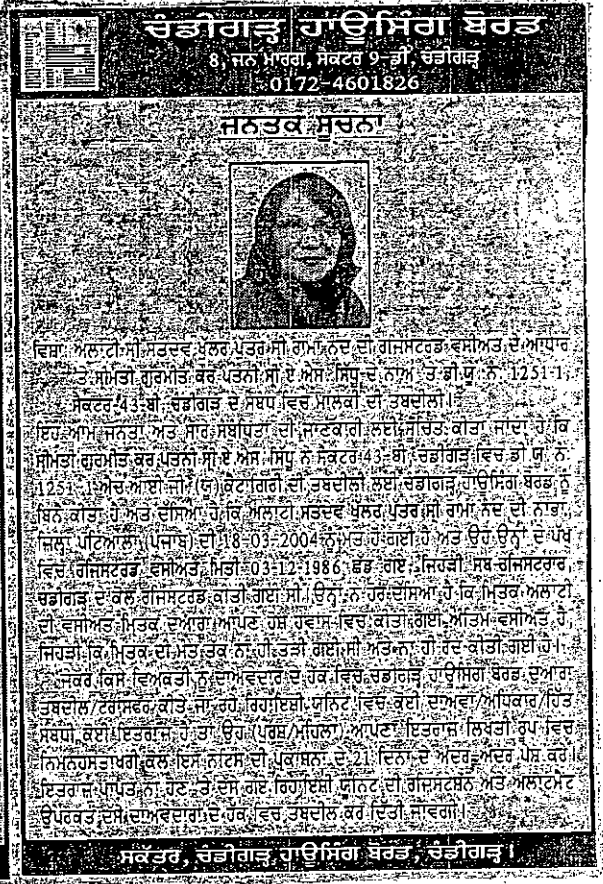 ਚੰਡੀਗੜ੍ਹ ਹਾਊਸਿੰਗ ਬੋਰਡ
8, ਜਨ ਮਾਰਗ, ਸੈਕਟਰ 9-ਡੀ, ਚੰਡੀਗੜ੍ਹ
0172-4601826
ਜਨਤਕ ਸੂਚਨਾ
ਵਿਸ਼ਾ: ਅਲਾਟੀ ਸ੍ਰੀ ਸਤਦੇਵ ਖੁੱਲਰ ਪੁੱਤਰ ਸ੍ਰੀ ਰਾਮਾ ਨੰਦ ਦੀ ਰਜਿਸਟਰਡ ਵਸੀਅਤ ਦੇ ਆਧਾਰ
'ਤੇ ਸ੍ਰੀਮਤੀ ਗੁਰਮੀਤ ਕੌਰ ਪਤਨੀ ਸ੍ਰੀ ਏ.ਐਸ. ਸਿੱਧੂ ਦੇ ਨਾਂਅ 'ਤੇ ਡੀ.ਯੂ. ਨੰ. 1251-1,
ਸੈਕਟਰ-43-ਬੀ, ਚੰਡੀਗੜ੍ਹ ਦੇ ਸਬੰਧ ਵਿਚ ਮਾਲਕੀ ਦੀ ਤਬਦੀਲੀ।
ਇਹ ਆਮ ਜਨਤਾ ਅਤੇ ਸਾਰੇ ਸਬੰਧਿਤਾਂ ਦੀ ਜਾਣਕਾਰੀ ਲਈ ਸੂਚਿਤ ਕੀਤਾ ਜਾਂਦਾ ਹੈ ਕਿ
ਸ੍ਰੀਮਤੀ ਗੁਰਮੀਤ ਕੌਰ ਪਤਨੀ ਸ੍ਰੀ ਏ.ਐਸ. ਸਿੱਧੂ ਨੇ ਸੈਕਟਰ 43-ਬੀ, ਚੰਡੀਗੜ੍ਹ ਵਿਚ ਡੀ.ਯੂ. ਨੰ.
1251-1 ਐਚ.ਆਈ.ਜੀ. (ਯੂ) ਕੈਟਾਗਿਰੀ ਦੀ ਤਬਦੀਲੀ ਲਈ ਚੰਡੀਗੜ੍ਹ ਹਾਊਸਿੰਗ ਬੋਰਡ ਨੂੰ
ਬਿਨੈ ਕੀਤਾ ਹੈ ਅਤੇ ਦੱਸਿਆ ਹੈ ਕਿ ਅਲਾਟੀ ਸਤਦੇਵ ਖੁੱਲਰ ਪੁੱਤਰ ਸ੍ਰੀ ਰਾਮਾ ਨੰਦ ਦੀ ਨਾਭਾ,
ਜ਼ਿਲ੍ਹਾ ਪਟਿਆਲਾ (ਪੰਜਾਬ) ਦੀ 18-03-2004 ਨੂੰ ਮੌਤ ਹੋ ਗਈ ਹੈ ਅਤੇ ਉਹ ਉਨ੍ਹਾਂ ਦੇ ਪੱਖ
ਵਿਚ ਰਜਿਸਟਰਡ ਵਸੀਅਤ, ਮਿਤੀ 03-12-1986 ਛੱਡ ਗਏ, ਜਿਹੜੀ ਸਬ-ਰਜਿਸਟਰਾਰ,
ਚੰਡੀਗੜ੍ਹ ਦੇ ਕੋਲ ਰਜਿਸਟਰਡ ਕੀਤੀ ਗਈ ਸੀ। ਉਨ੍ਹਾਂ ਨੇ ਹੋਰ ਦੱਸਿਆ ਹੈ ਕਿ ਮ੍ਰਿਤਕ ਅਲਾਟੀ
ਦੀ ਵਸੀਅਤ ਮ੍ਰਿਤਕ ਦੁਆਰਾ ਆਪਣੇ ਹੋਸ਼ ਹਵਾਸ ਵਿਚ ਕੀਤੀ ਗਈ ਅੰਤਿਮ ਵਸੀਅਤ ਹੈ,
ਜਿਹੜੀ ਕਿ ਮ੍ਰਿਤਕ ਦੀ ਮੌਤ ਤੱਕ ਨਾ ਹੀ ਤੋੜੀ ਗਈ ਸੀ ਅਤੇ ਨਾ ਹੀ ਰੱਦ ਕੀਤੀ ਗਈ ਹੈ।
ਜੇਕਰ ਕਿਸੇ ਵਿਅਕਤੀ ਨੂੰ ਦਾਅਵੇਦਾਰ ਦੇ ਹੱਕ ਵਿਚ ਚੰਡੀਗੜ੍ਹ ਹਾਊਸਿੰਗ ਬੋਰਡ ਦੁਆਰਾ
ਤਬਦੀਲ/ਟਰਾਂਸਫਰ ਕੀਤੇ ਜਾ ਰਹੇ ਰਿਹਾਇਸ਼ੀ ਯੂਨਿਟ ਵਿਚ ਕੋਈ ਦਾਅਵਾ/ਅਧਿਕਾਰ/ਹਿੱਤ
ਸਬੰਧੀ ਕੋਈ ਇਤਰਾਜ਼ ਹੈ ਤਾਂ ਉਹ (ਪੁਰਸ਼/ਮਹਿਲਾ) ਆਪਣਾ ਇਤਰਾਜ਼ ਲਿਖਤੀ ਰੂਪ ਵਿਚ
ਨਿਮਨਹਸਤਾਖਰੀ ਕੋਲ ਇਸ ਨੋਟਿਸ ਦੀ ਪ੍ਰਕਾਸ਼ਨਾ ਦੇ 21 ਦਿਨਾਂ ਦੇ ਅੰਦਰ-ਅੰਦਰ ਪੇਸ਼ ਕਰੇ।
ਇਤਰਾਜ਼ ਪ੍ਰਾਪਤ ਨਾ ਹੋਣ 'ਤੇ ਦੱਸੇ ਗਏ ਰਿਹਾਇਸ਼ੀ ਯੂਨਿਟ ਦੀ ਰਜਿਸਟ੍ਰੇਸ਼ਨ ਅਤੇ ਅਲਾਟਮੈਂਟ
ਉਪਰੋਕਤ ਦੱਸੇ ਦਾਅਵੇਦਾਰਾਂ ਦੇ ਹੱਕ ਵਿਚ ਤਬਦੀਲ ਕਰ ਦਿੱਤੀ ਜਾਵੇਗੀ।
ਸਕੱਤਰ, ਚੰਡੀਗੜ੍ਹ ਹਾਊਸਿੰਗ ਬੋਰਡ, ਚੰਡੀਗੜ੍ਹ।